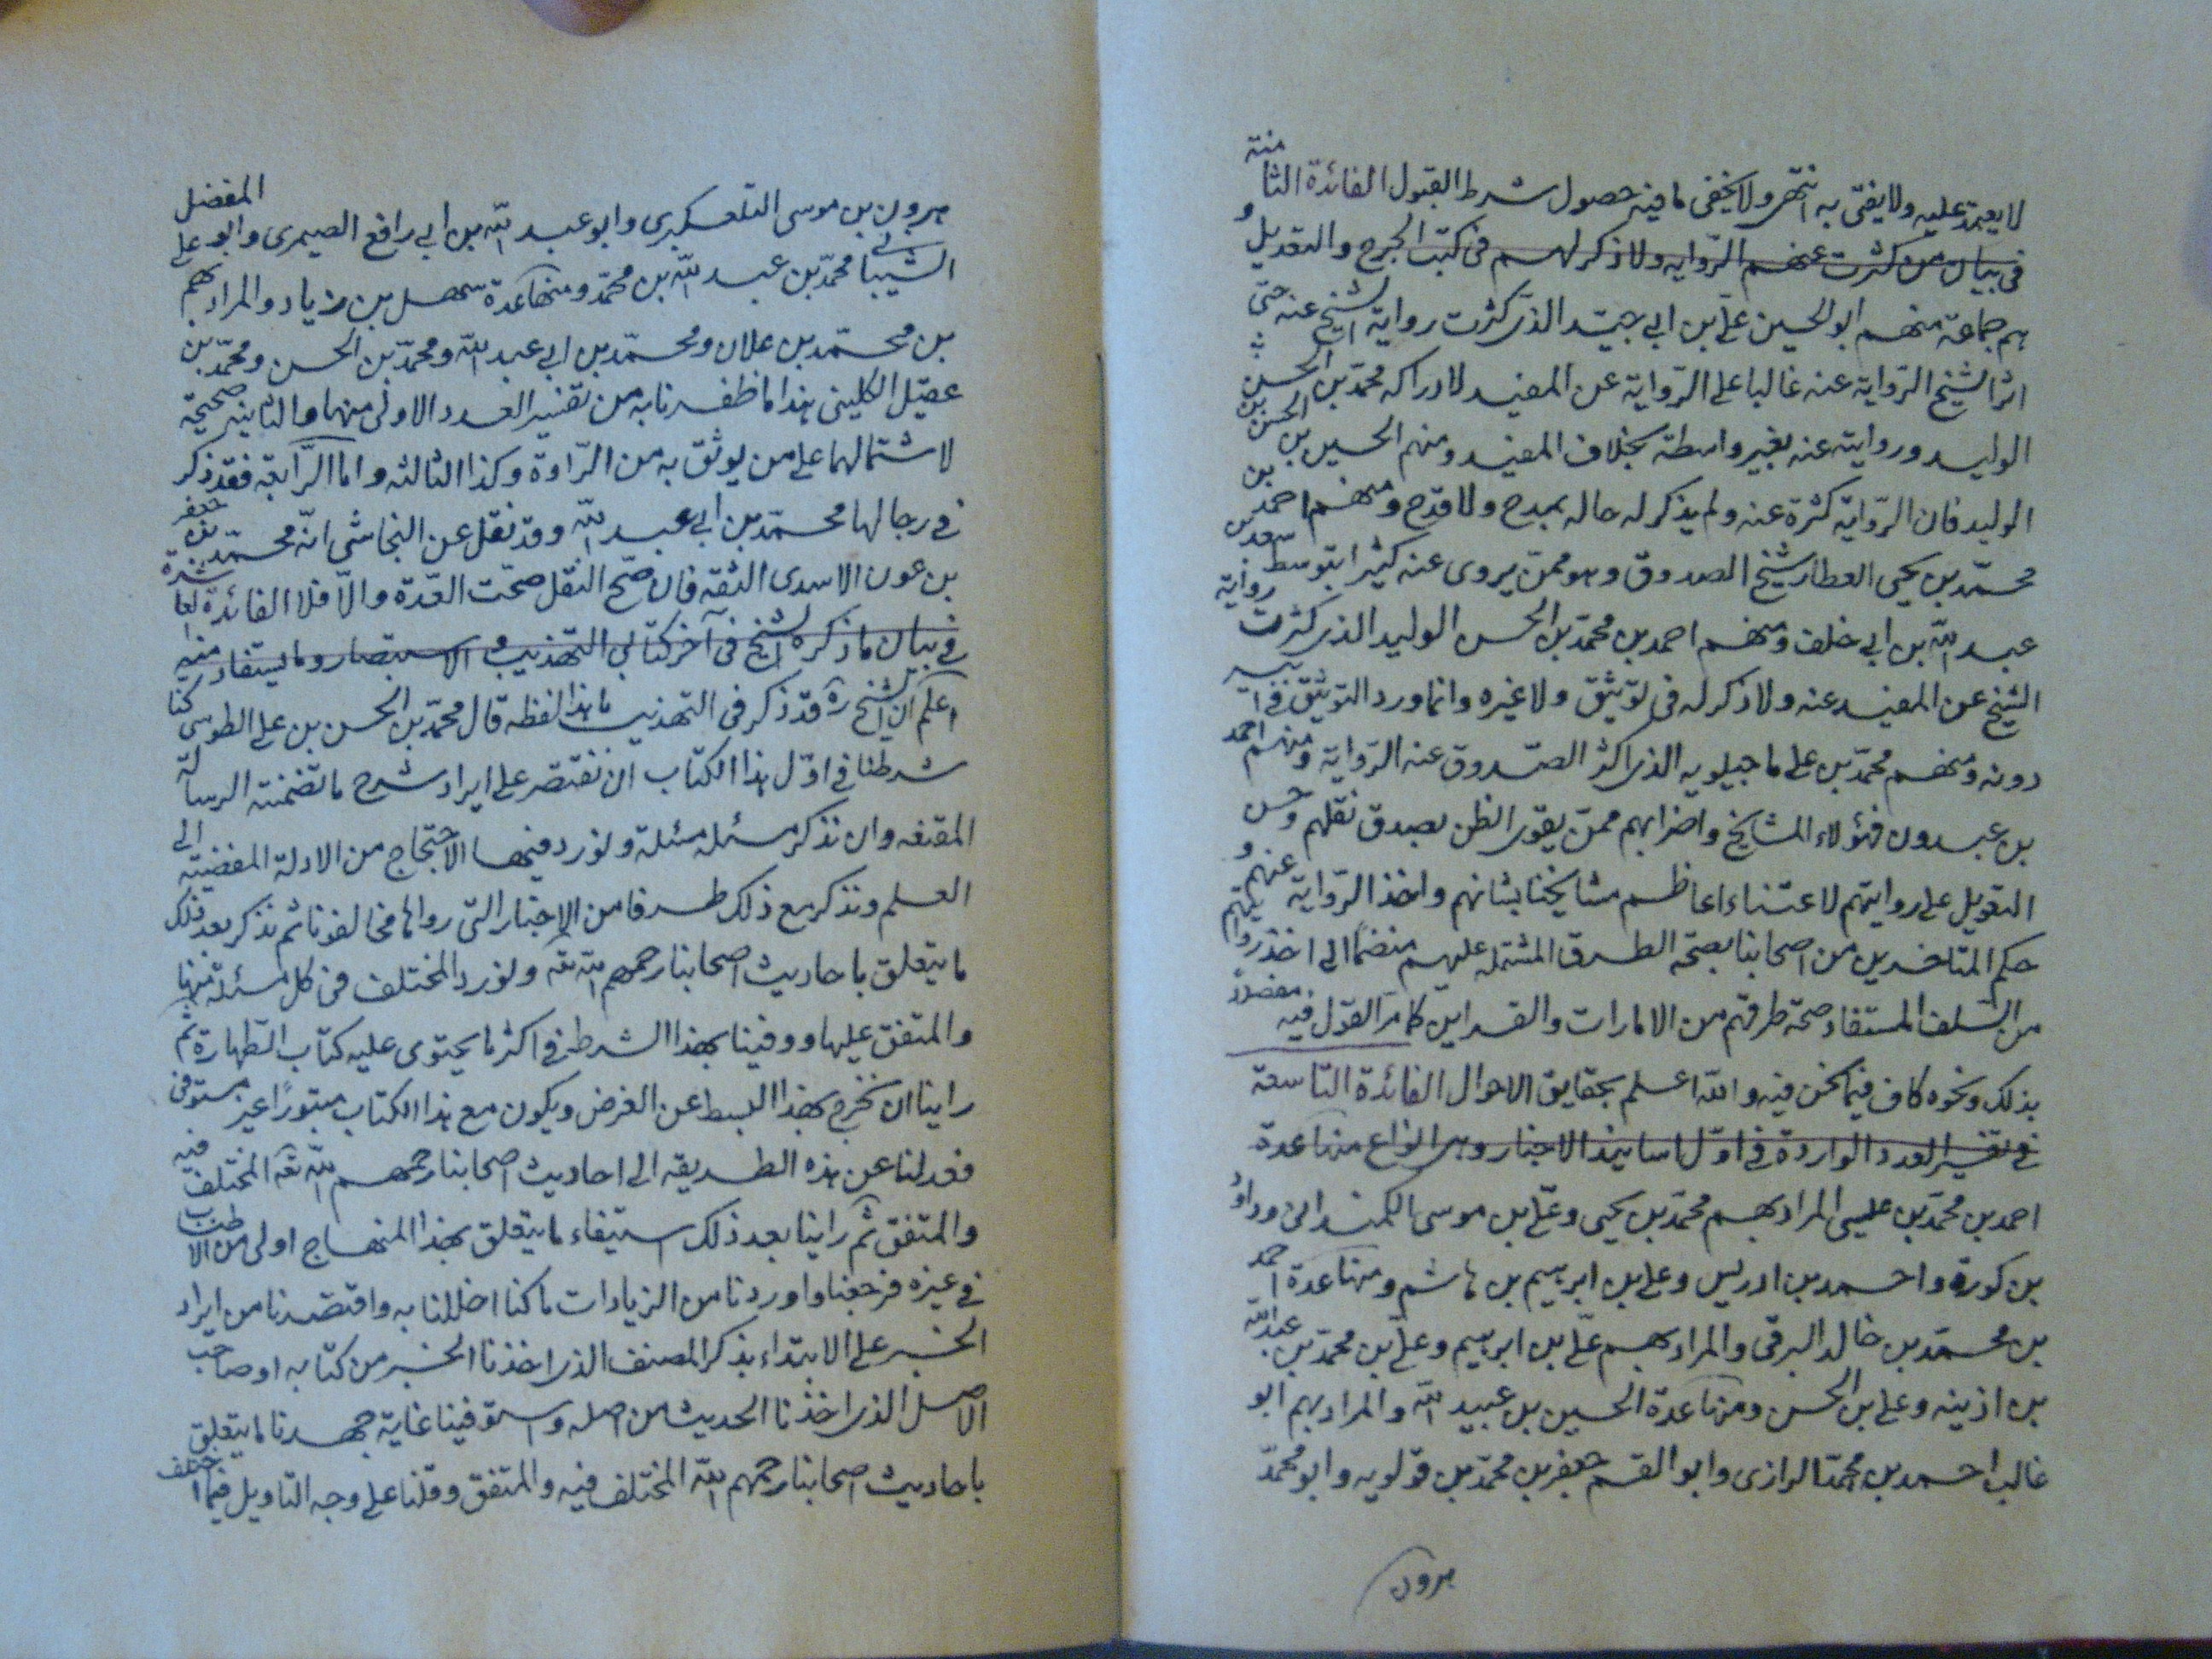 لا يعتمد عليه ولا يفتى به انتهى ولا يخفى ما فيه حصول شرط القبول الفائدة الثامنة
فى بيان من كثرت عنهم الرّواية ولا ذكر لهم فى كتب الجرح والتعديل و
هم جماعة منهم ابو الحسين علىّ بن ابى جيّد الذى كثرت رواية الشيخ عنه حتى
اثر الشيخ الرّواية عنه غالبا على الرّواية عن المفيد لادراكه محمّد بن الحسن بن
الوليد وروايته عنه بغير واسطة بخلاف المفيد ومنهم الحسين بن الحسن بن
الوليد فان الرّواية كثرة عنه ولم يذكر له حاله بمدح ولا قدح ومنهم احمد بن
محمّد بن يحيى العطار شيخ الصدوق وهو ممّن يروى عنه كثيرا بتوسط سعد بن
عبد الله بن ابى خلف ومنهم احمد بن محمّد بن الحسن الوليد الذى كثرت رواية
الشيخ عن المفيد عنه ولا ذكر له فى توثيق ولا غيره وانما ورد التوثيق فى ابيه
دونه ومنهم محمّد بن على ماجيلويه الذى اكثر الصّدوق عنه الرّواية ومنهم احمد
بن عبدون فهؤلاء المشايخ واضرابهم ممّن يقوى الظن بصدق نقلهم وحسن
التعويل على روايتهم لاعتناء اعاظم مشايخنا بشانهم واخذ الرّواية عنهم و
حكم المتاخرين من اصحابنا بصحّة الطرق المشتملة عليهم منضمّا الى اخذ روايتهم
من السّلف المستفاد صحة طرقهم من الامارات والقراين كما مرّ القول فيه مفصلاً
بذلك ونحوه كاف فيما نحن فيه والله اعلم بحقايق الاحوال الفائدة التاسعة
فى تفسير العدد الواردة فى اوّل اسانيد الاخبار وهى انواع منها عدة
احمد بن محمّد بن عيسى المراد بهم محمّد بن يحيى وعلىّ بن موسى الكمندانى وداود
بن كورة واحمد بن ادريس وعلى بن ابرهيم بن هاشم ومنها عدة احمد
بن محمّد بن خالد البرقى والمراد بهم علىّ بن ابرهيم وعلىّ بن محمّد بن عبد الله
بن اذينه وعلى بن الحسن ومنها عدة الحسين بن عبيد الله والمراد بهم ابو
غالب احمد بن محمّد الرازى وابو القسم جعفر بن محمّد بن قولويه وابو محمّد
هرون
هرون بن موسى التلعكبرى وابو عبد الله بن ابى رافع الصيمرى وابو المفضل
الشيبانى محمّد بن عبد الله بن محمّد ومنها عدة سهل بن زياد والمراد بهم على
بن محمّد بن علان ومحمّد بن ابى عبد الله ومحمّد بن الحسن ومحمّد بن
عقيل الكلينى هذا ما ظفرنا به من تفسير العدد الاولى منها والثانيه صحيحة
لاشتمالهما على من يوثق به من الرّواة وكذا الثالثه واما الرّابعة فقد ذكر
فى رجالها محمّد بن ابى عبد الله وقد نقل عن النجاشى انّه محمّد بن جعفر
بن عون الاسدى الثقه فان صحّ النقل صحّت العدّة والّا فلا الفائدة العاشرة
فى بيان ما ذكره الشيخ فى آخر كتابى التهذيب والاستبصار وما يستفاد منه
اعلم ان الشيخ ره قد ذكر فى التهذيب ما هذا لفظه قال محمّد بن الحسن بن على الطوسى كنا
شرطنا فى اوّل هذا الكتاب ان نقتصر على ايراد شرح ما تضمنته الرسالة
المقنعه وان نذكر مسئله مسئلة ونورد فيها الاحتجاج من الادلة المفضية الى
العلم ونذكر مع ذلك طرفا من الاخبار التى رواها مخالفونا ثم نذكر بعد ذلك
ما يتعلق باحاديث اصحابنا رحمهم الله تعه ونورد المختلف فى كل مسئلة منها
والمتفق عليها ووفينا بهذا الشرط فى اكثر ما يحتوى عليه كتاب الطّهارة ثم
راينا ان نخرج بهذا البسط عن الغرض ويكون مع هذا الكتاب مبتورًا غير مستوفى
فعدلنا عن هذه الطريقه الى احاديث اصحابنا رحمهم الله تعه المختلف فيه
والمتفق ثم راينا بعد ذلك استيفاء ما يتعلق بهذا المنهاج اولى من الاطناب
فى غيره فرجعنا واوردنا من الزيادات ما كنا اخللنا به واقتصرنا من ايراد
الخبر على الابتداء بذكر المصنف الذى اخذنا الخبر من كتابه او صاحب
الاصل الذى اخذنا الحديث من اصله واستوفينا غاية جهدنا ما يتعلق
باحاديث اصحابنا رحمهم الله المختلف فيه والمتفق وقلنا على وجه التاويل فيما اختلف